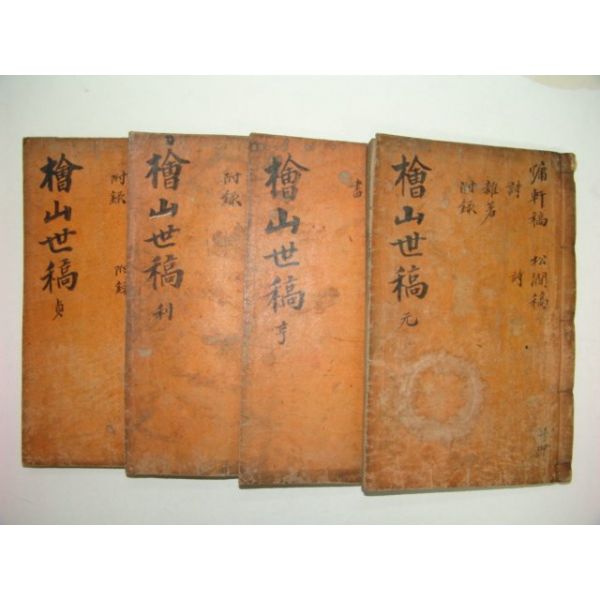 檜山世稿 元
慵軒稿 松澗稿
詩 詩
雜著
附錄
共四
檜山世稿 亨
書
檜山世稿 利
附錄
檜山世稿 貞
附錄 附錄